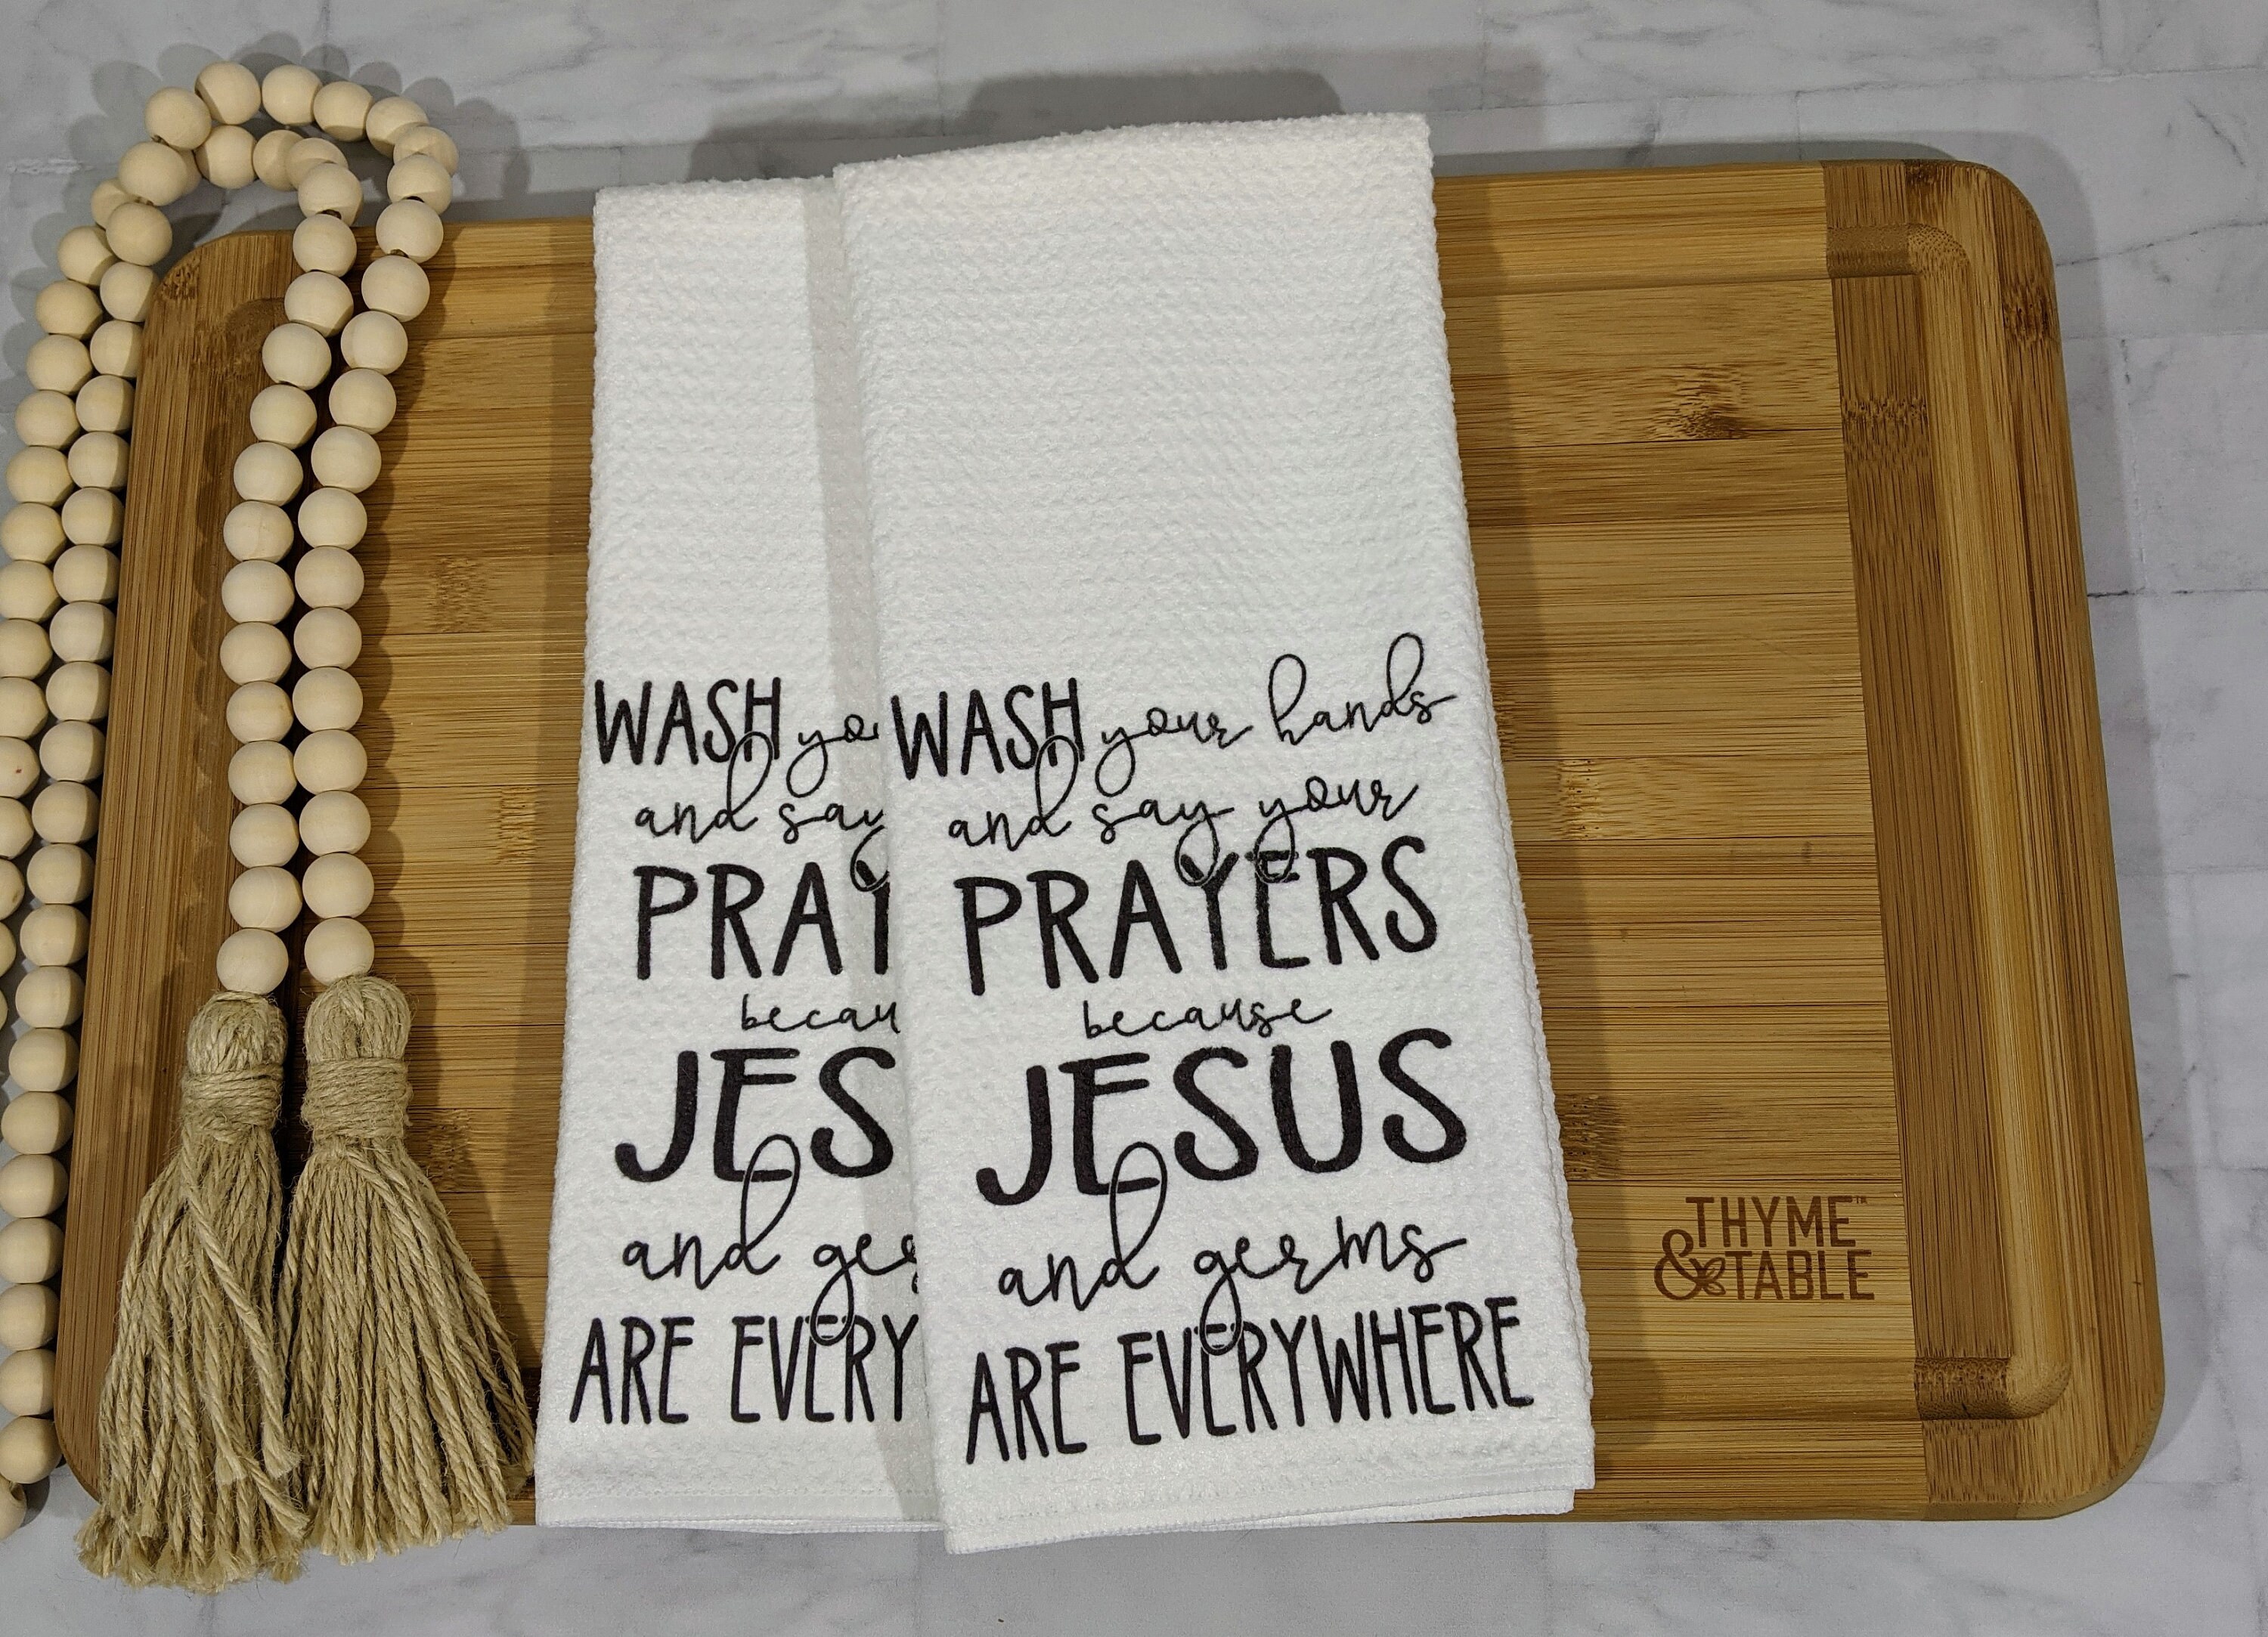 WASH you
and say
PRAY
becau
JES
and ger
ARE EVERY
WASH your hands
and say your
PRAYERS
because
JESUS
and germs
ARE EVERYWHERE
THYME™
& TABLE